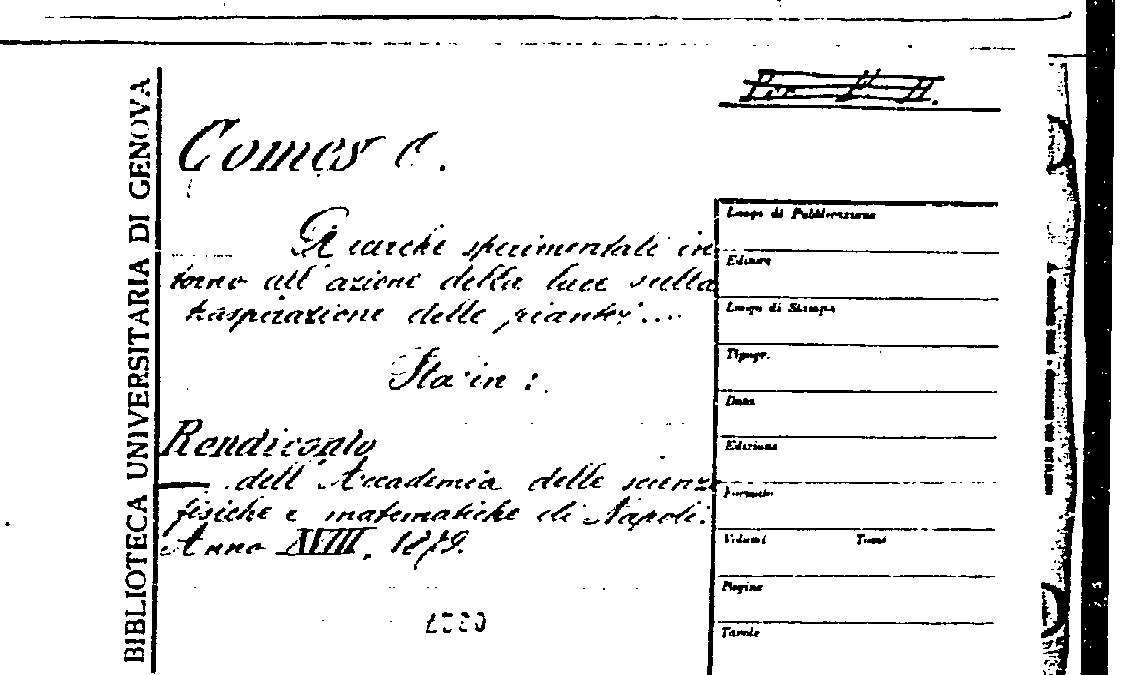 BIBLIOTECA UNIVERSITARIA DI GENOVA
Comes C.
Ricerche sperimentali in
torno all'azione della luce sulla
traspirazione delle piante....
Sta in:
Rendiconto
— dell'Accademia delle scienze
fisiche e matematiche di Napoli.
Anno XVIII, 1879.
Luogo di Pubblicazione
Editore
Luogo di Stampa
Tipogr.
Data
Edizione
Formato
Volumi Tomi
Pagine
Tavole